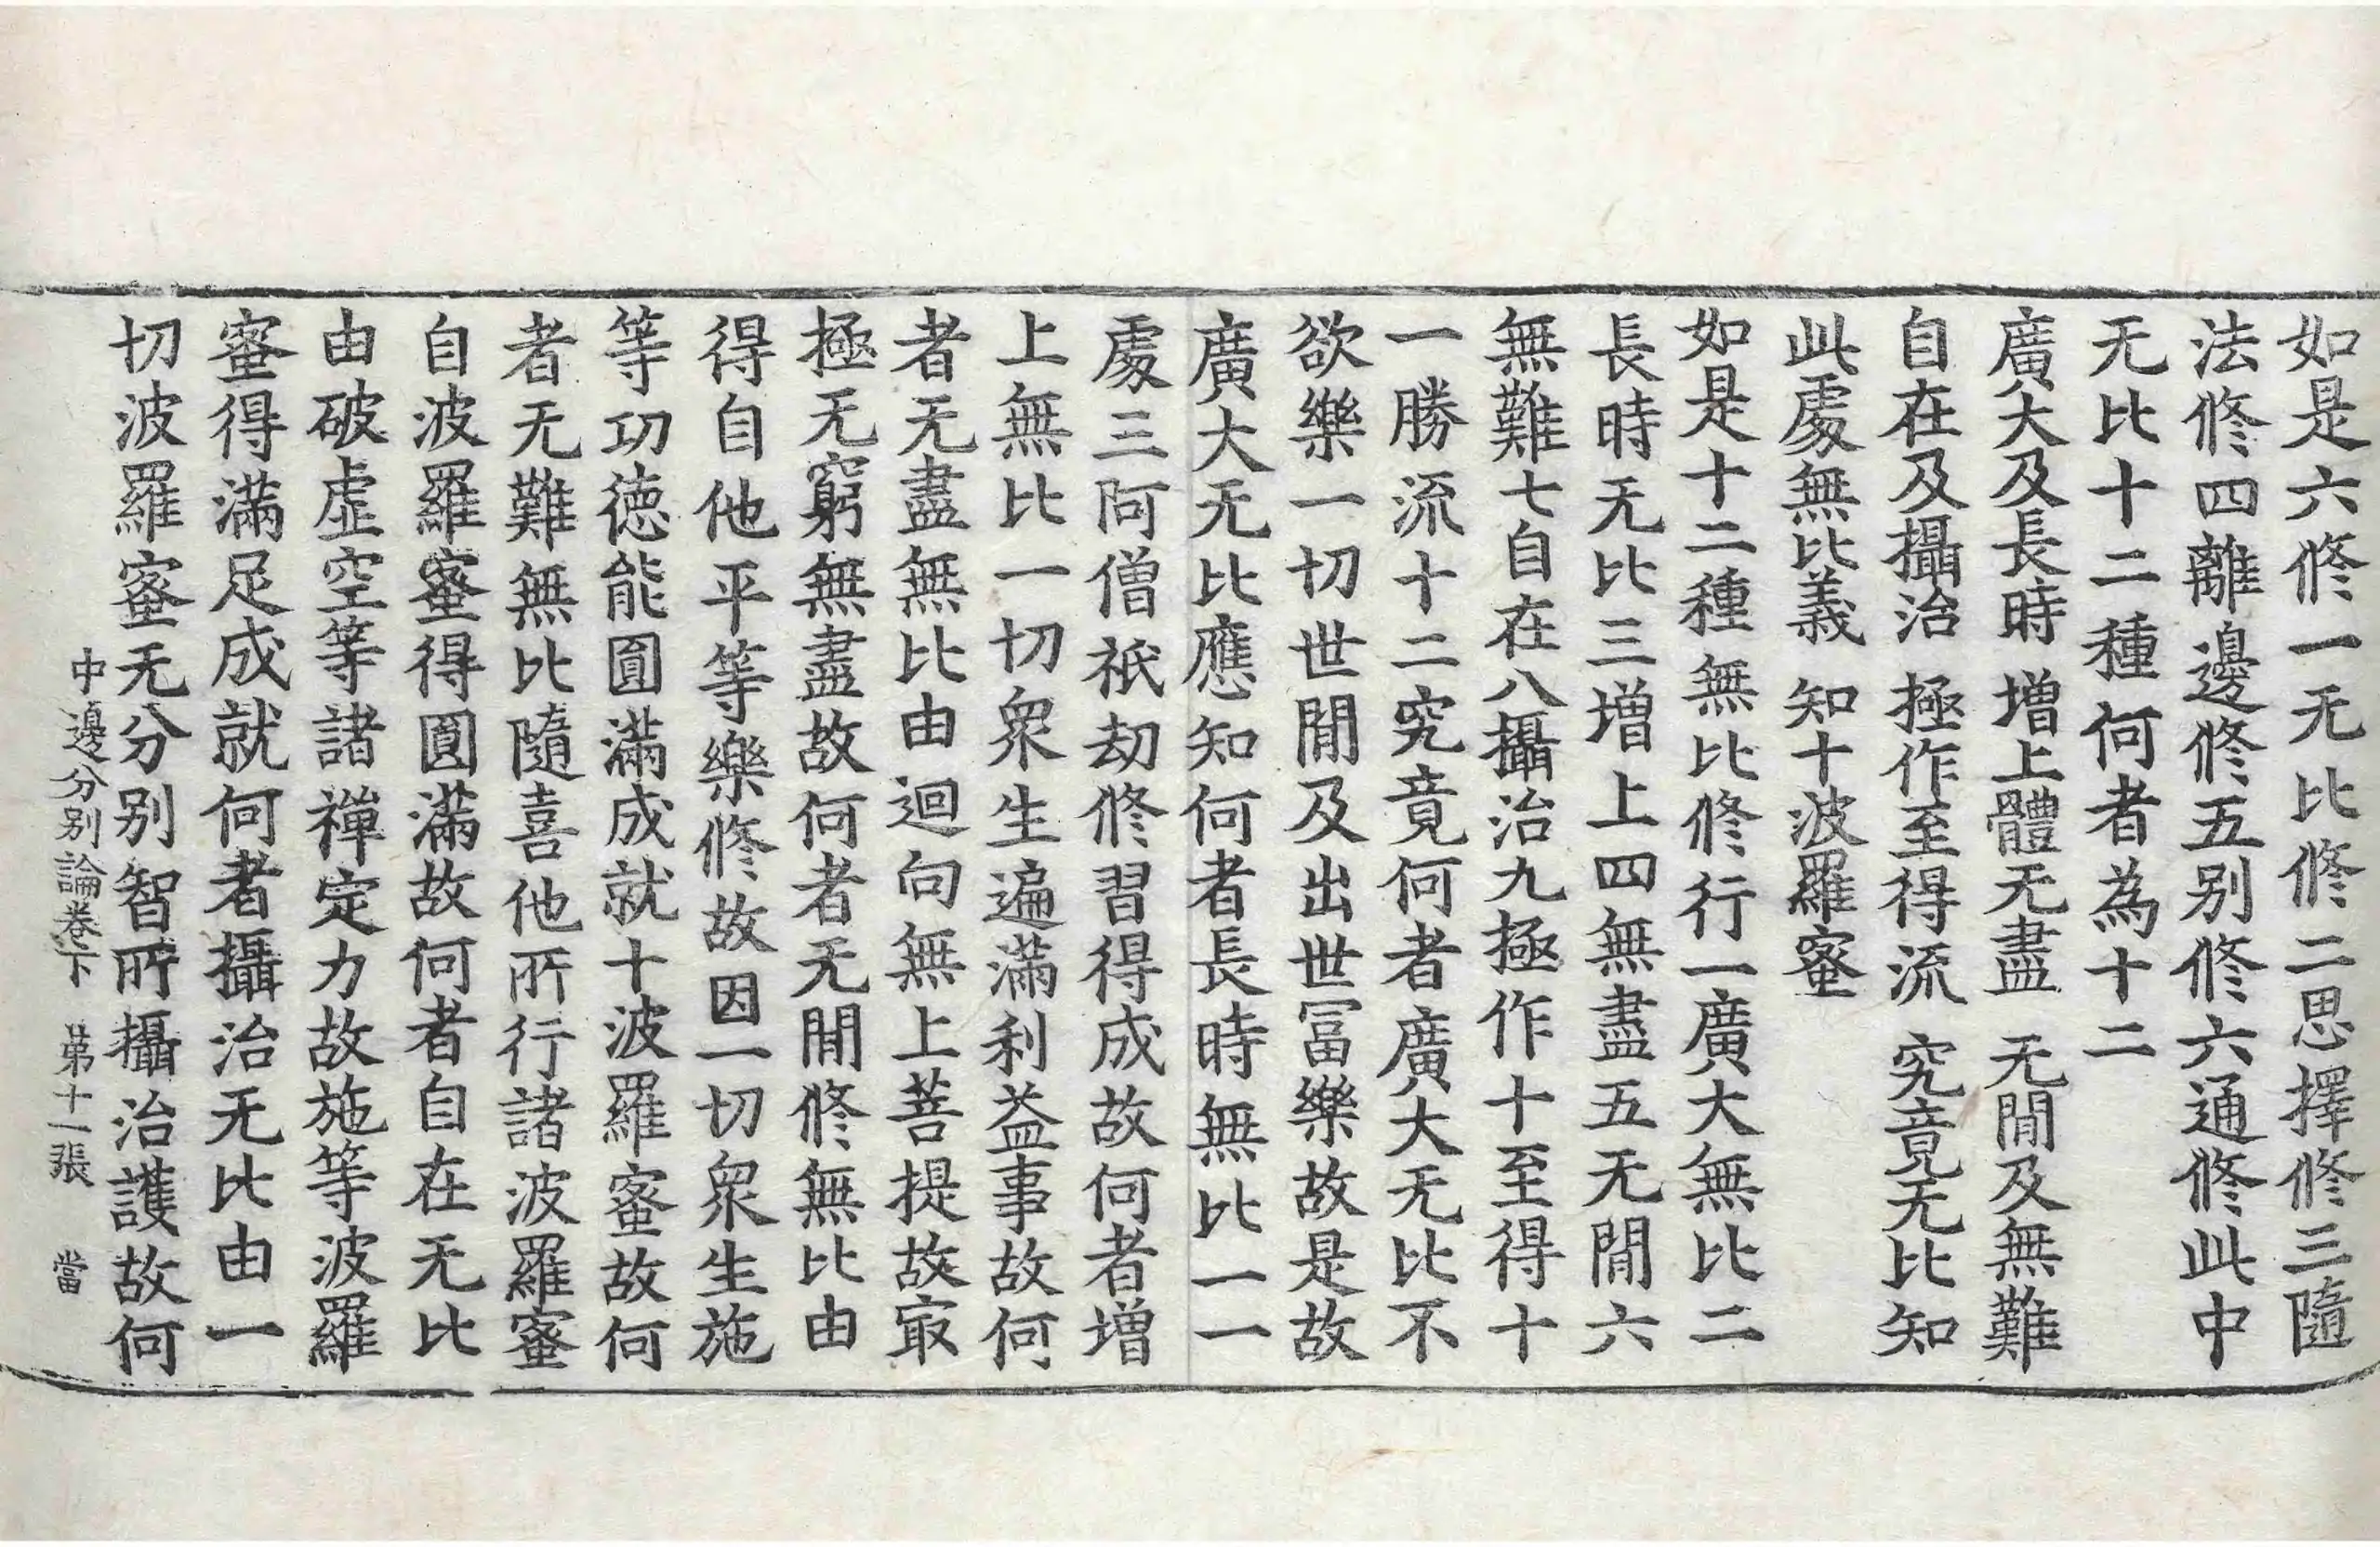 如是六修一无比修二思擇修三隨
法修四離邊修五别修六通修此中
无比十二種何者為十二
廣大及長時 增上體无盡 无閒及無難
自在及攝治 極作至得流 究竟无比知
此處無比義 知十波羅蜜
如是十二種無比修行一廣大無比二
長時无比三增上四無盡五无閒六
無難七自在八攝治九極作十至得十
一勝流十二究竟何者廣大无比不
欲樂一切世閒及出世冨樂故是故
廣大无比應知何者長時無比一一
處三阿僧祇劫修習得成故何者增
上無比一切衆生遍滿利益事故何
者无盡無比由迴向無上菩提故㝡
極无窮無盡故何者无閒修無比由
得自他平等樂修故因一切衆生施
等功德能圓滿成就十波羅蜜故何
者无難無比隨喜他所行諸波羅蜜
自波羅蜜得圓滿故何者自在无比
由破虛空等諸禪定力故施等波羅
蜜得滿足成就何者攝治无比由一
切波羅蜜无分别智所攝治護故何
中邊分别論卷下 第十一張 當